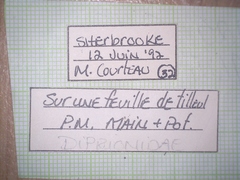 SHERBROOKE
12 JUIN '92
M. COURTEAU 32
SUR UNE feuille de tilleul
P.M. MAIN + Pot.
DIPRIONIDAE